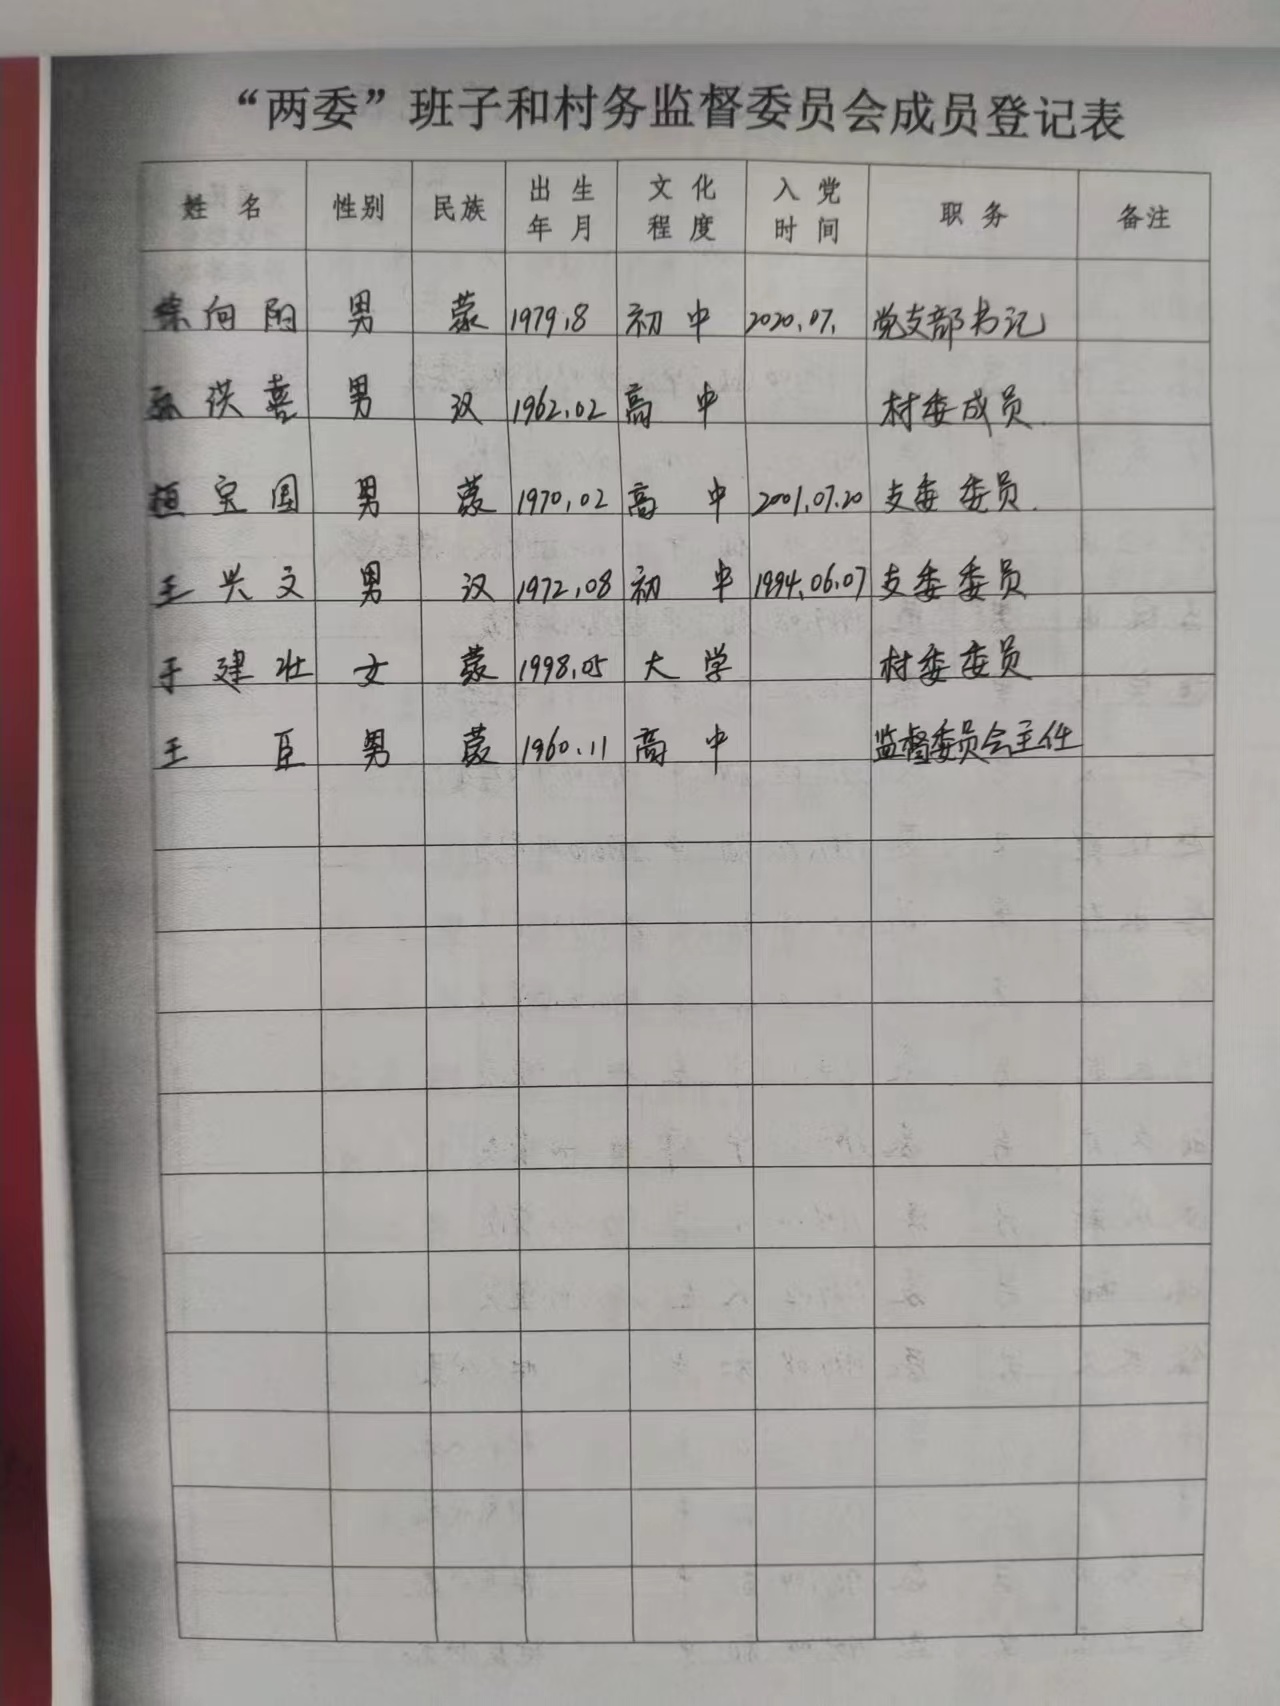 “两委”班子和村务监督委员会成员登记表
姓 名 性别 民族 出 生 年 月 文 化 程 度 入 党 时 间 职 务 备注
向阳 男 蒙 1979.8 初中 2020.07. 党支部书记
孙洪喜 男 汉 1962.02 高中 村委成员.
宝国 男 蒙 1970.02 高中 2001.07.20 支委委员.
王兴文 男 汉 1972.08 初中 1994.06.07 支委委员
于建壮 女 蒙 1998.05 大学 村委委员
王臣 男 蒙 1960.11 高中 监督委员会主任